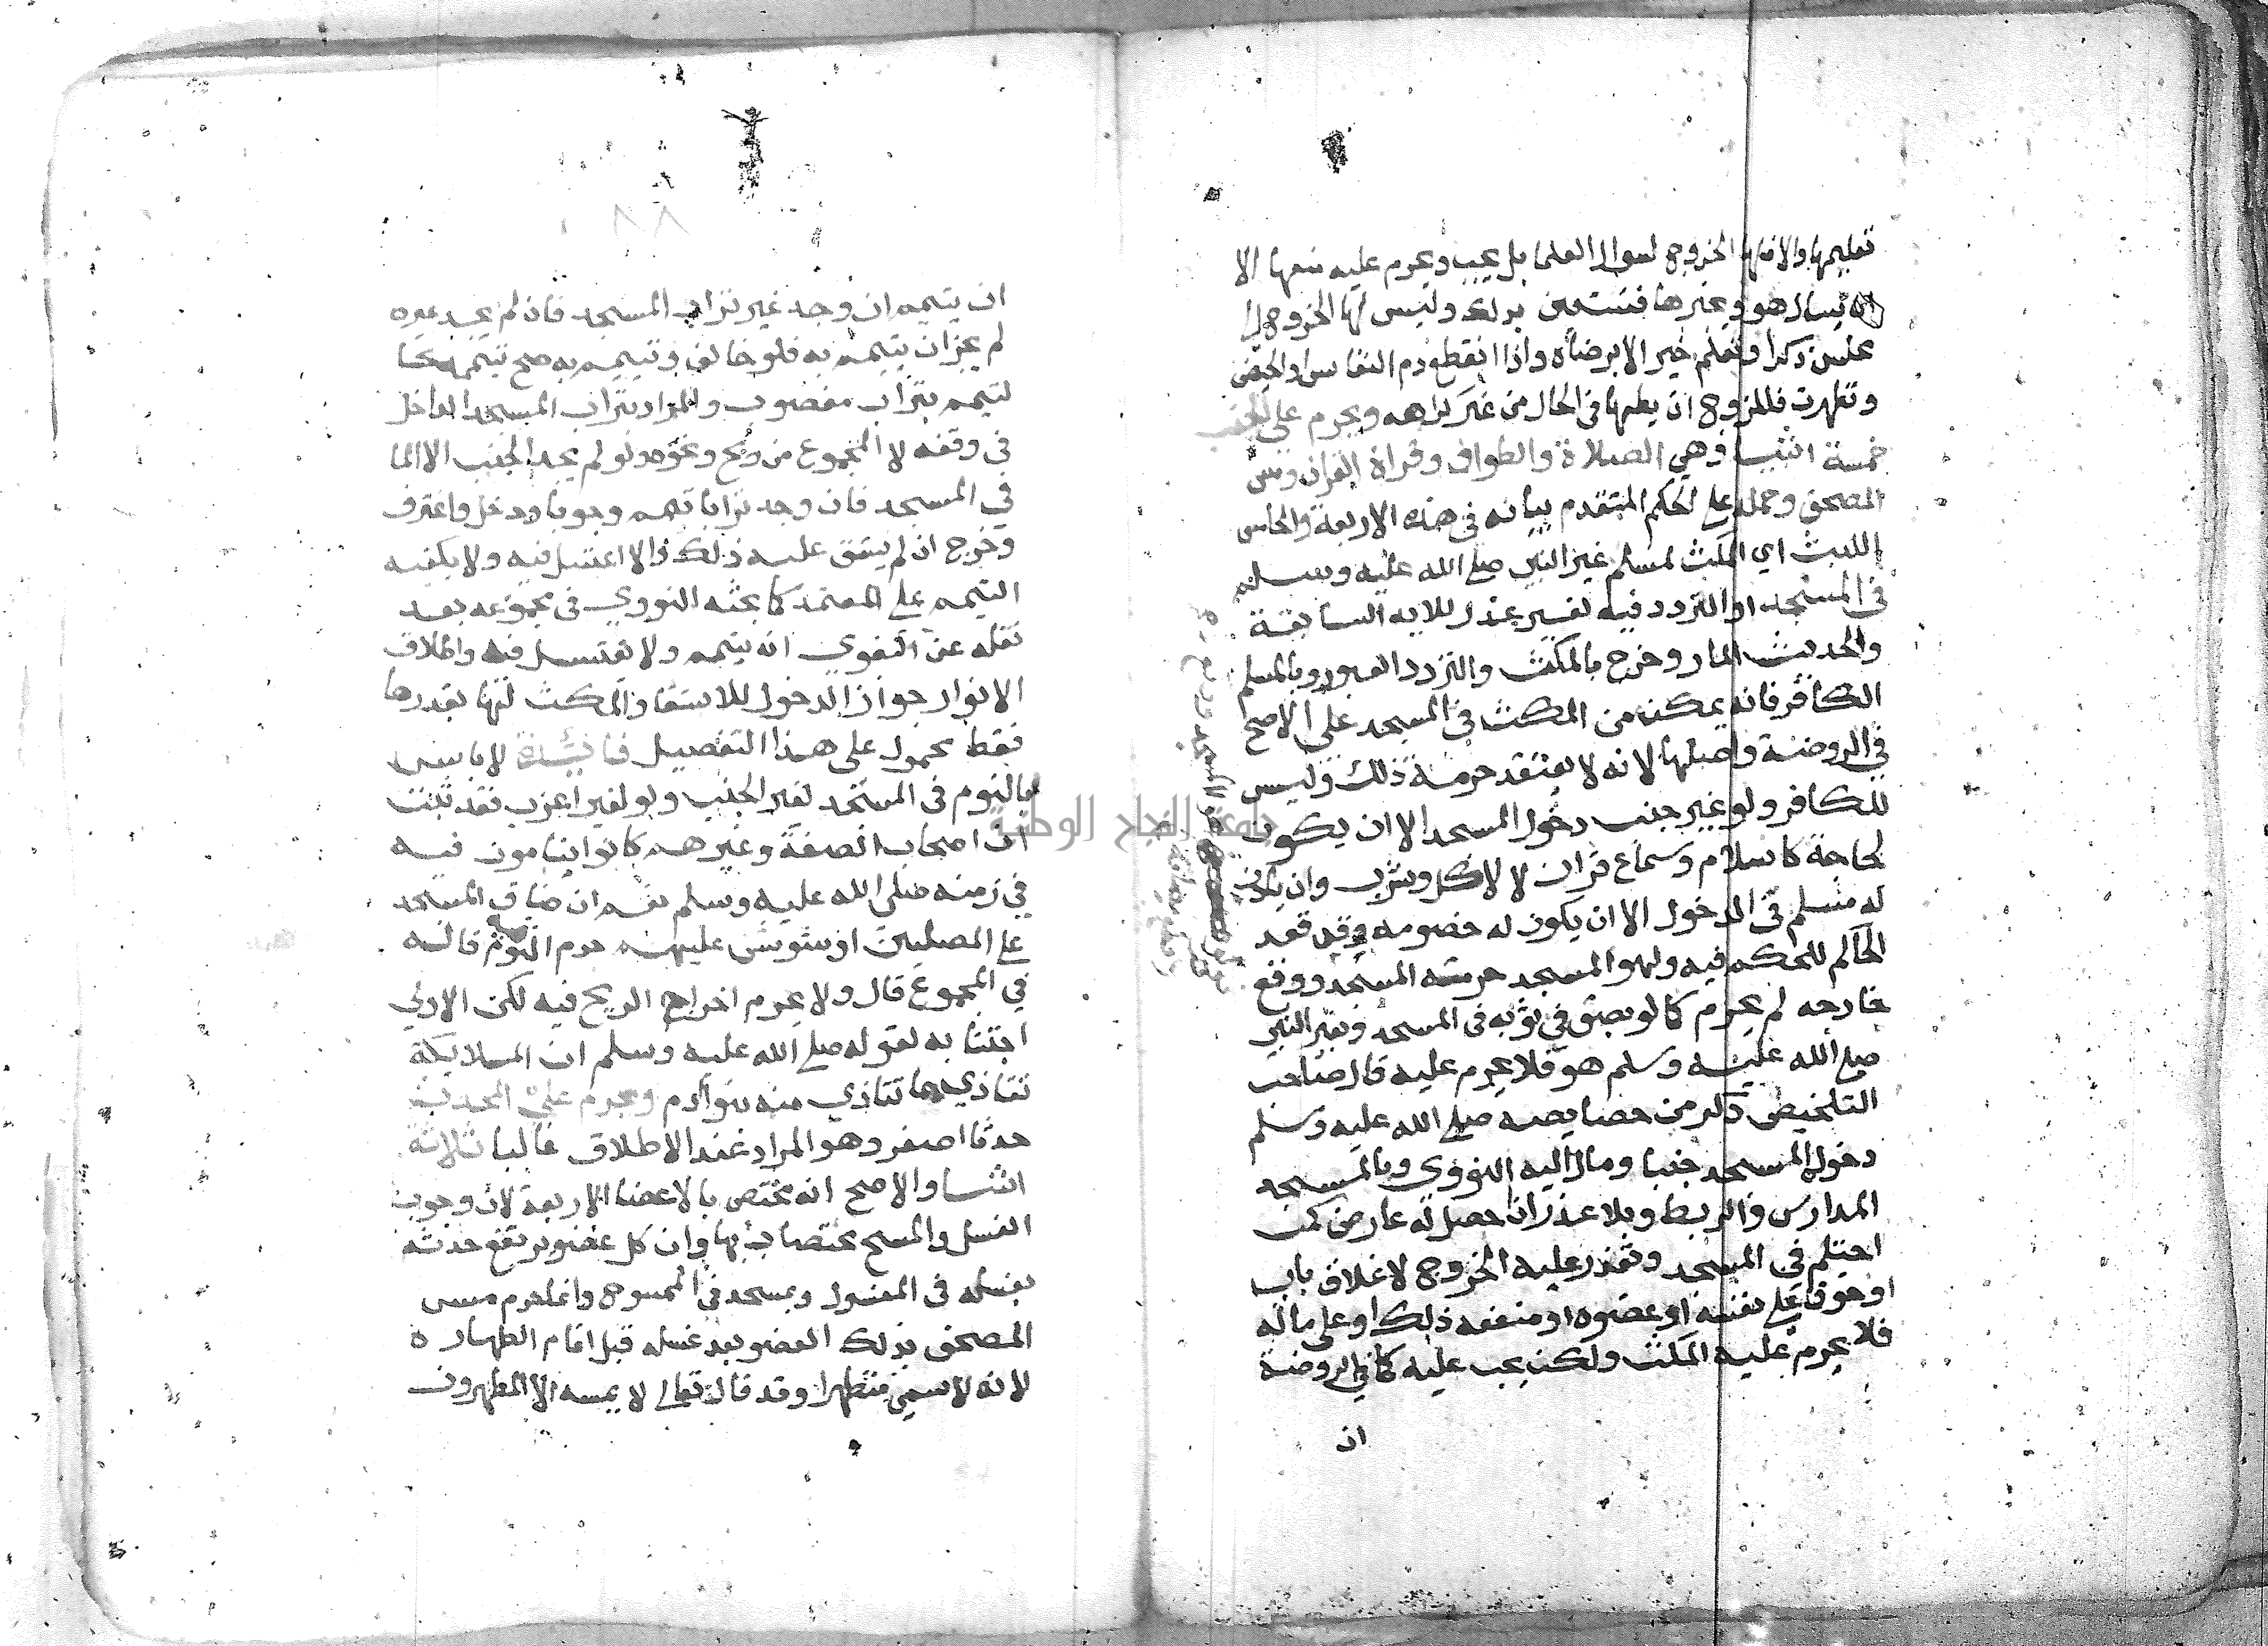 تعليمها والا فلها الخروج لسوال العلما بل يجب ويحرم عليه منعها الا
ان يسال هو ويخبرها فتستغني بذلك وليس لها الخروج الى
مجلس ذكر او تعلم خير الا برضاه واذا انقطع دم النفاس او الحيض
وتطهرت فللزوج ان يطاها في الحال من غير كراهه ويحرم على الجنب
خمسة اشيا وهي الصلاة والطواف وقراة القران ومس
المصحف وحمله على الحكم المتقدم بيانه في هذه الاربعة والخامس
اللبث اي المكث لمسلم غير النبي صلى الله عليه وسلم
في المسجد او التردد فيه لغير عذر للايه السابقة
والحديث المار وخرج بالمكث والتردد العبور وبالمسلم
الكافر فانه يمكن من المكث في المسجد على الاصح
في الروضة واصلها لانه لا يعتقد حرمة ذلك وليس
للكافر ولو غير جنب دخول المسجد الا ان يكون
لحاجة كاسلام وسماع قران لا لاكل وشرب وان ياذن
له مسلم في الدخول الا ان يكون له خصومه وقد قعد
الحاكم للحكم فيه ولهوا المسجد حرمة المسجد ووقع
خارجه لم يحرم كما لو بصق في ثوبه في المسجد وبغير النبي
صلى الله عليه وسلم هو فلا يحرم عليه قال صاحب
التلخيص ذكر من خصايصه صلى الله عليه وسلم
دخول المسجد جنبا ومال اليه النووي وبالمسجد
المدارس والربط وبلا عذر اذا حصل له عارض كمن
احتلم في المسجد وتعذر عليه الخروج لاغلاق باب
او خوف على نفسه او عضوه او منفعه ذلك او على ماله
فلا يحرم عليه المكث ولكن يجب عليه كما في الروضة
ان
٨٨
ان يتيمم ان وجد غير تراب المسجد فان لم يجد غيره
لم يجز ان يتيمم به فلو خالف وتيمم به صح تيممه كما
لو تيمم بتراب مغصوب والمراد بتراب المسجد الداخل
في وقفه لا المجموع من ريح ونحوه ولو لم يجد الجنب الا الما
في المسجد فان وجد ترابا تيمم وجوبا ودخل واغترف
وخرج ان لم يشق عليه ذلك والا اغتسل فيه ولا يكفيه
التيمم على المعتمد كما بحثه النووي في مجموعه بعد
نقله عن البغوي انه يتيمم ولا يغتسل فيه واطلاق
الانوار جواز الدخول للاستقا والمكث لها بقدرها
فقط محمول على هذا التفصيل فائدة لا باس
بالنوم في المسجد لغير الجنب ولو لغير اعزب فقد ثبت
ان اصحاب الصفة وغيرهم كانوا ينامون فيه
في زمنه صلى الله عليه وسلم نعم ان ضاق المسجد
على المصلين او شوش عليهم حرم النوم قاله
في المجموع قال ولا يحرم اخراج الريح فيه لكن الاولى
اجتنابه لقوله صلى الله عليه وسلم ان الملايكة
تتاذى مما تتاذى منه بنو ادم ويحرم على المحدث
حدثا اصغر وهو المراد عند الاطلاق غالبا ثلاثة
اشيا والاصح انه مختص بالاعضا الاربعة لان وجوب
الغسل والمسح مختصان بها وان كل عضو يرتفع حدثه
بغسله في المغسول وبمسحه في الممسوح وانما حرم مس
المصحف بذلك العضو بعد غسله قبل تمام الطهارة
لانه لا يسمى متطهرا وقد قال تعالى لا يمسه الا المطهرون
جامعة النجاح الوطنية